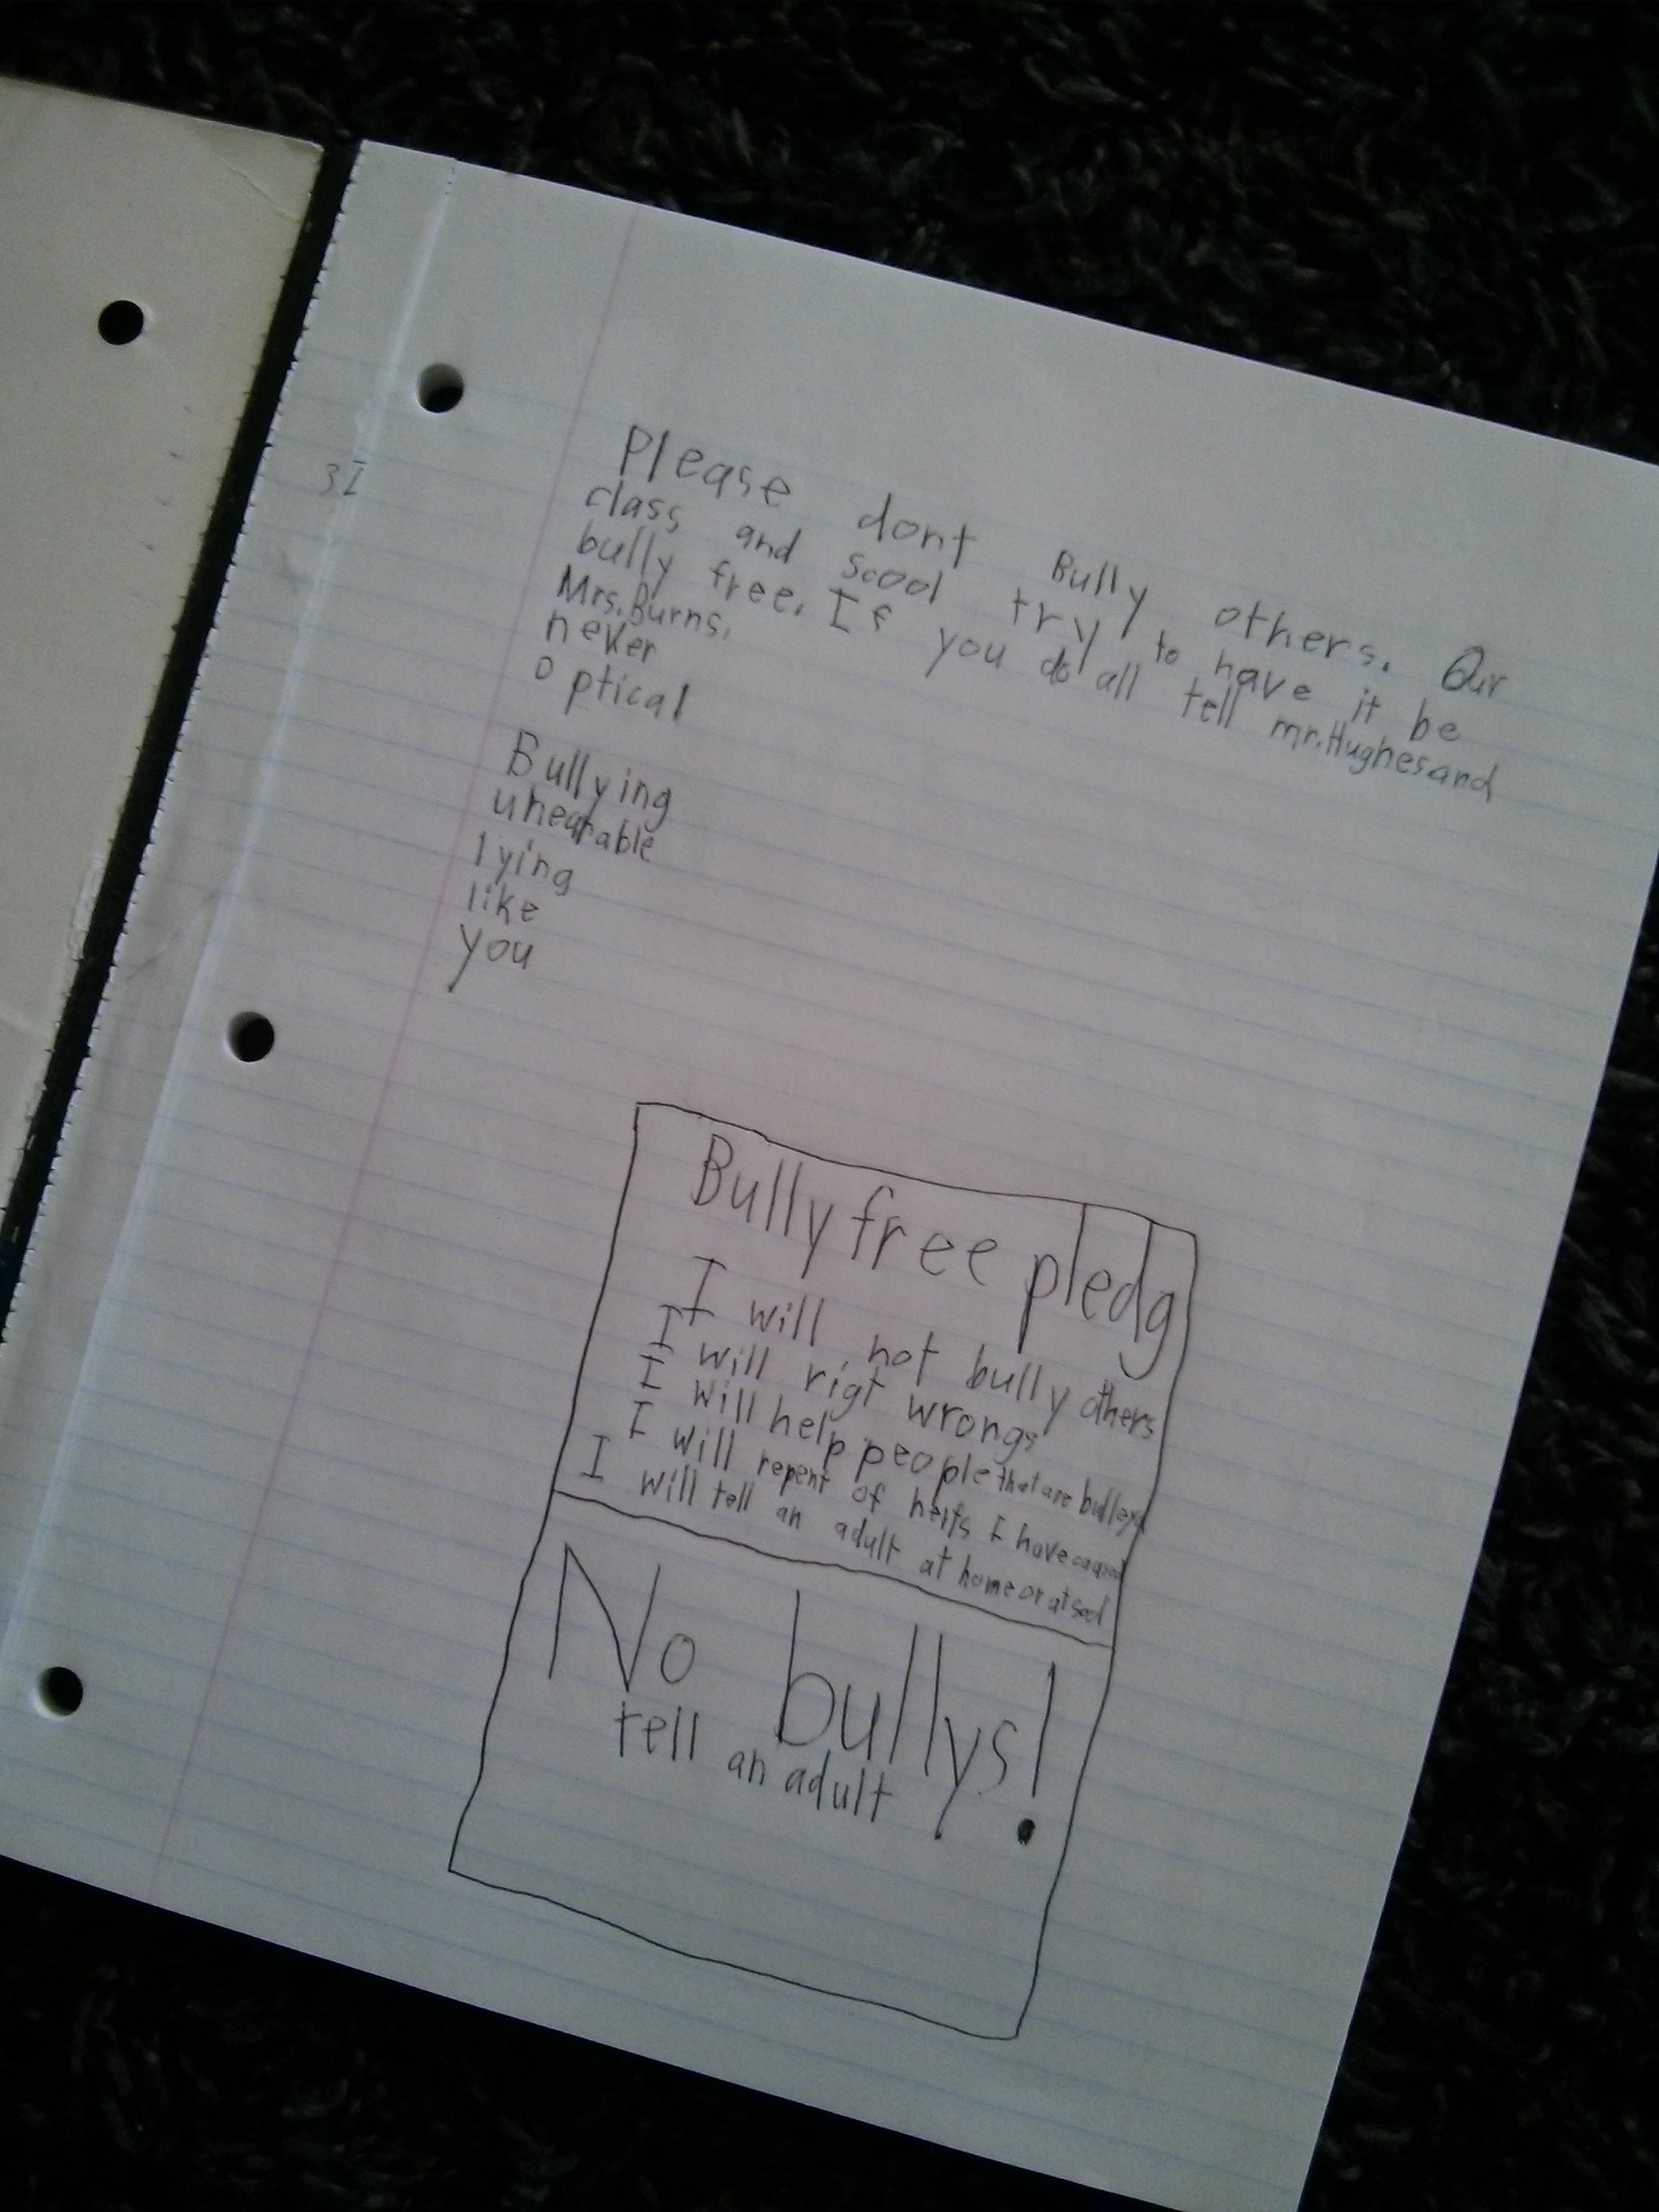 Please dont Bully others. Our
class and scool try to have it be
bully free. If you do all tell mr.Hughes and
Mrs.Burns.
never
optical
Bullying
unearable
lying
like
you
3I
Bully free pledg
I will not bully others
I will rigt wrongs
I will help people that are bulleyd
I will repent of herts I have caused
I will tell an adult at home or at scool
No bullys!
tell an adult